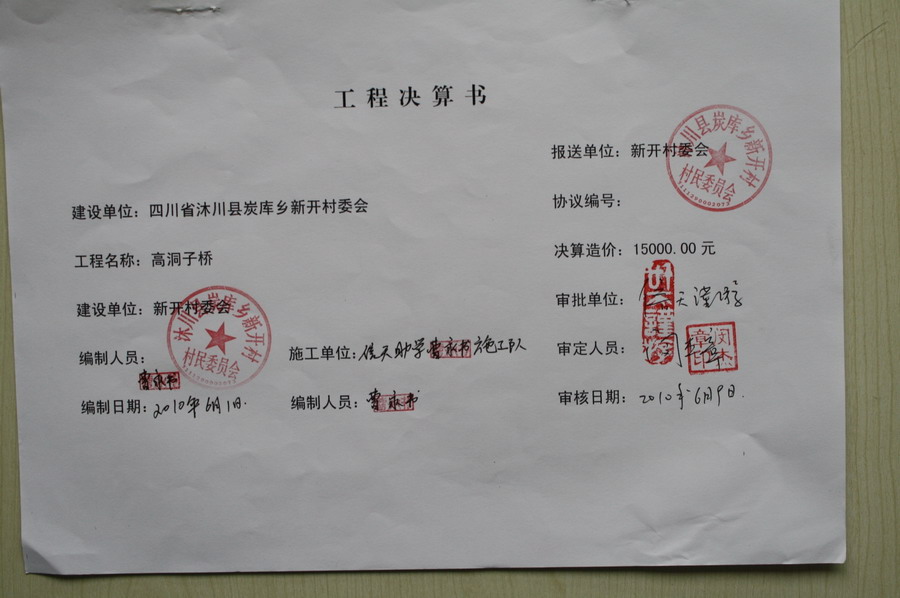 工程决算书
报送单位：新开村委会
建设单位：四川省沐川县炭库乡新开村委会
协议编号：
工程名称：高洞子桥
决算造价：15000.00 元
建设单位：新开村委会
审批单位：
沐川县炭库乡新开村
村民委员会
编制人员：
施工单位：侯天助学 施工队
审定人员：
编制日期：2010年6月1日.
编制人员：
审核日期：2010年6月9日.
沐川县炭库乡新开村
村民委员会